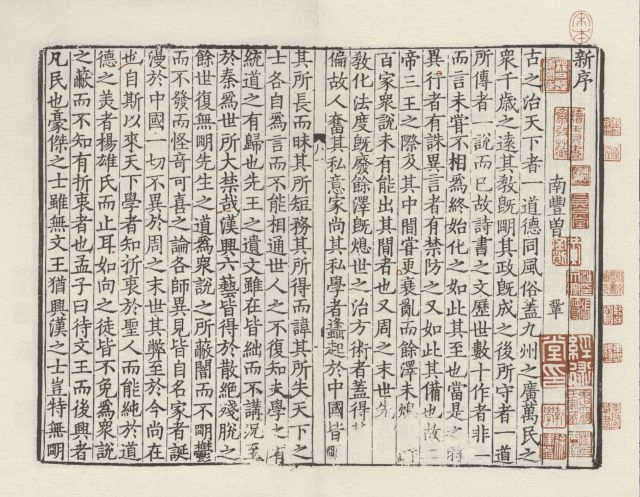 宋本
新序
南豐曾鞏
古之治天下者一道德同風俗蓋九州之廣萬民之
衆千歲之遠其敎旣眀其政旣成之後所守者一道
所傳者一說而已故詩書之文歷世數十作者非一
而言未甞不相爲終始化之如此其至也當是之時
異行者有誅異言者有禁防之又如此其備也故
帝三王之際及其中間甞更衰亂而餘澤未
百家衆說未有能出其間者也又周之末世
敎化法度旣廢餘澤旣熄世之治方術者蓋得
偏故人奮其私意家尚其私學者蠭起於中國皆
其所長而昧其所短務其所得而諱其所失天下之
士各自爲言而不能相通世人之不復知夫學之有
統道之有歸也先王之遺文雖在皆絀而不講況至
於秦爲世所大禁哉漢興六藝皆得於散絕殘脫之
餘世復無眀先生之道爲衆說之所蔽闇而不眀鬱
而不發而怪竒可喜之論各師異見皆自名家者誕
漫於中國一切不異於周之末世其弊至於今尚在
也自斯以來天下學者知折衷於聖人而能純於道
德之美者楊雄氏而止耳如向之徒皆不免爲衆說
之蔽而不知有折衷者也孟子曰待文王而後興者
凡民也豪傑之士雖無文王猶興漢之士豈特無眀